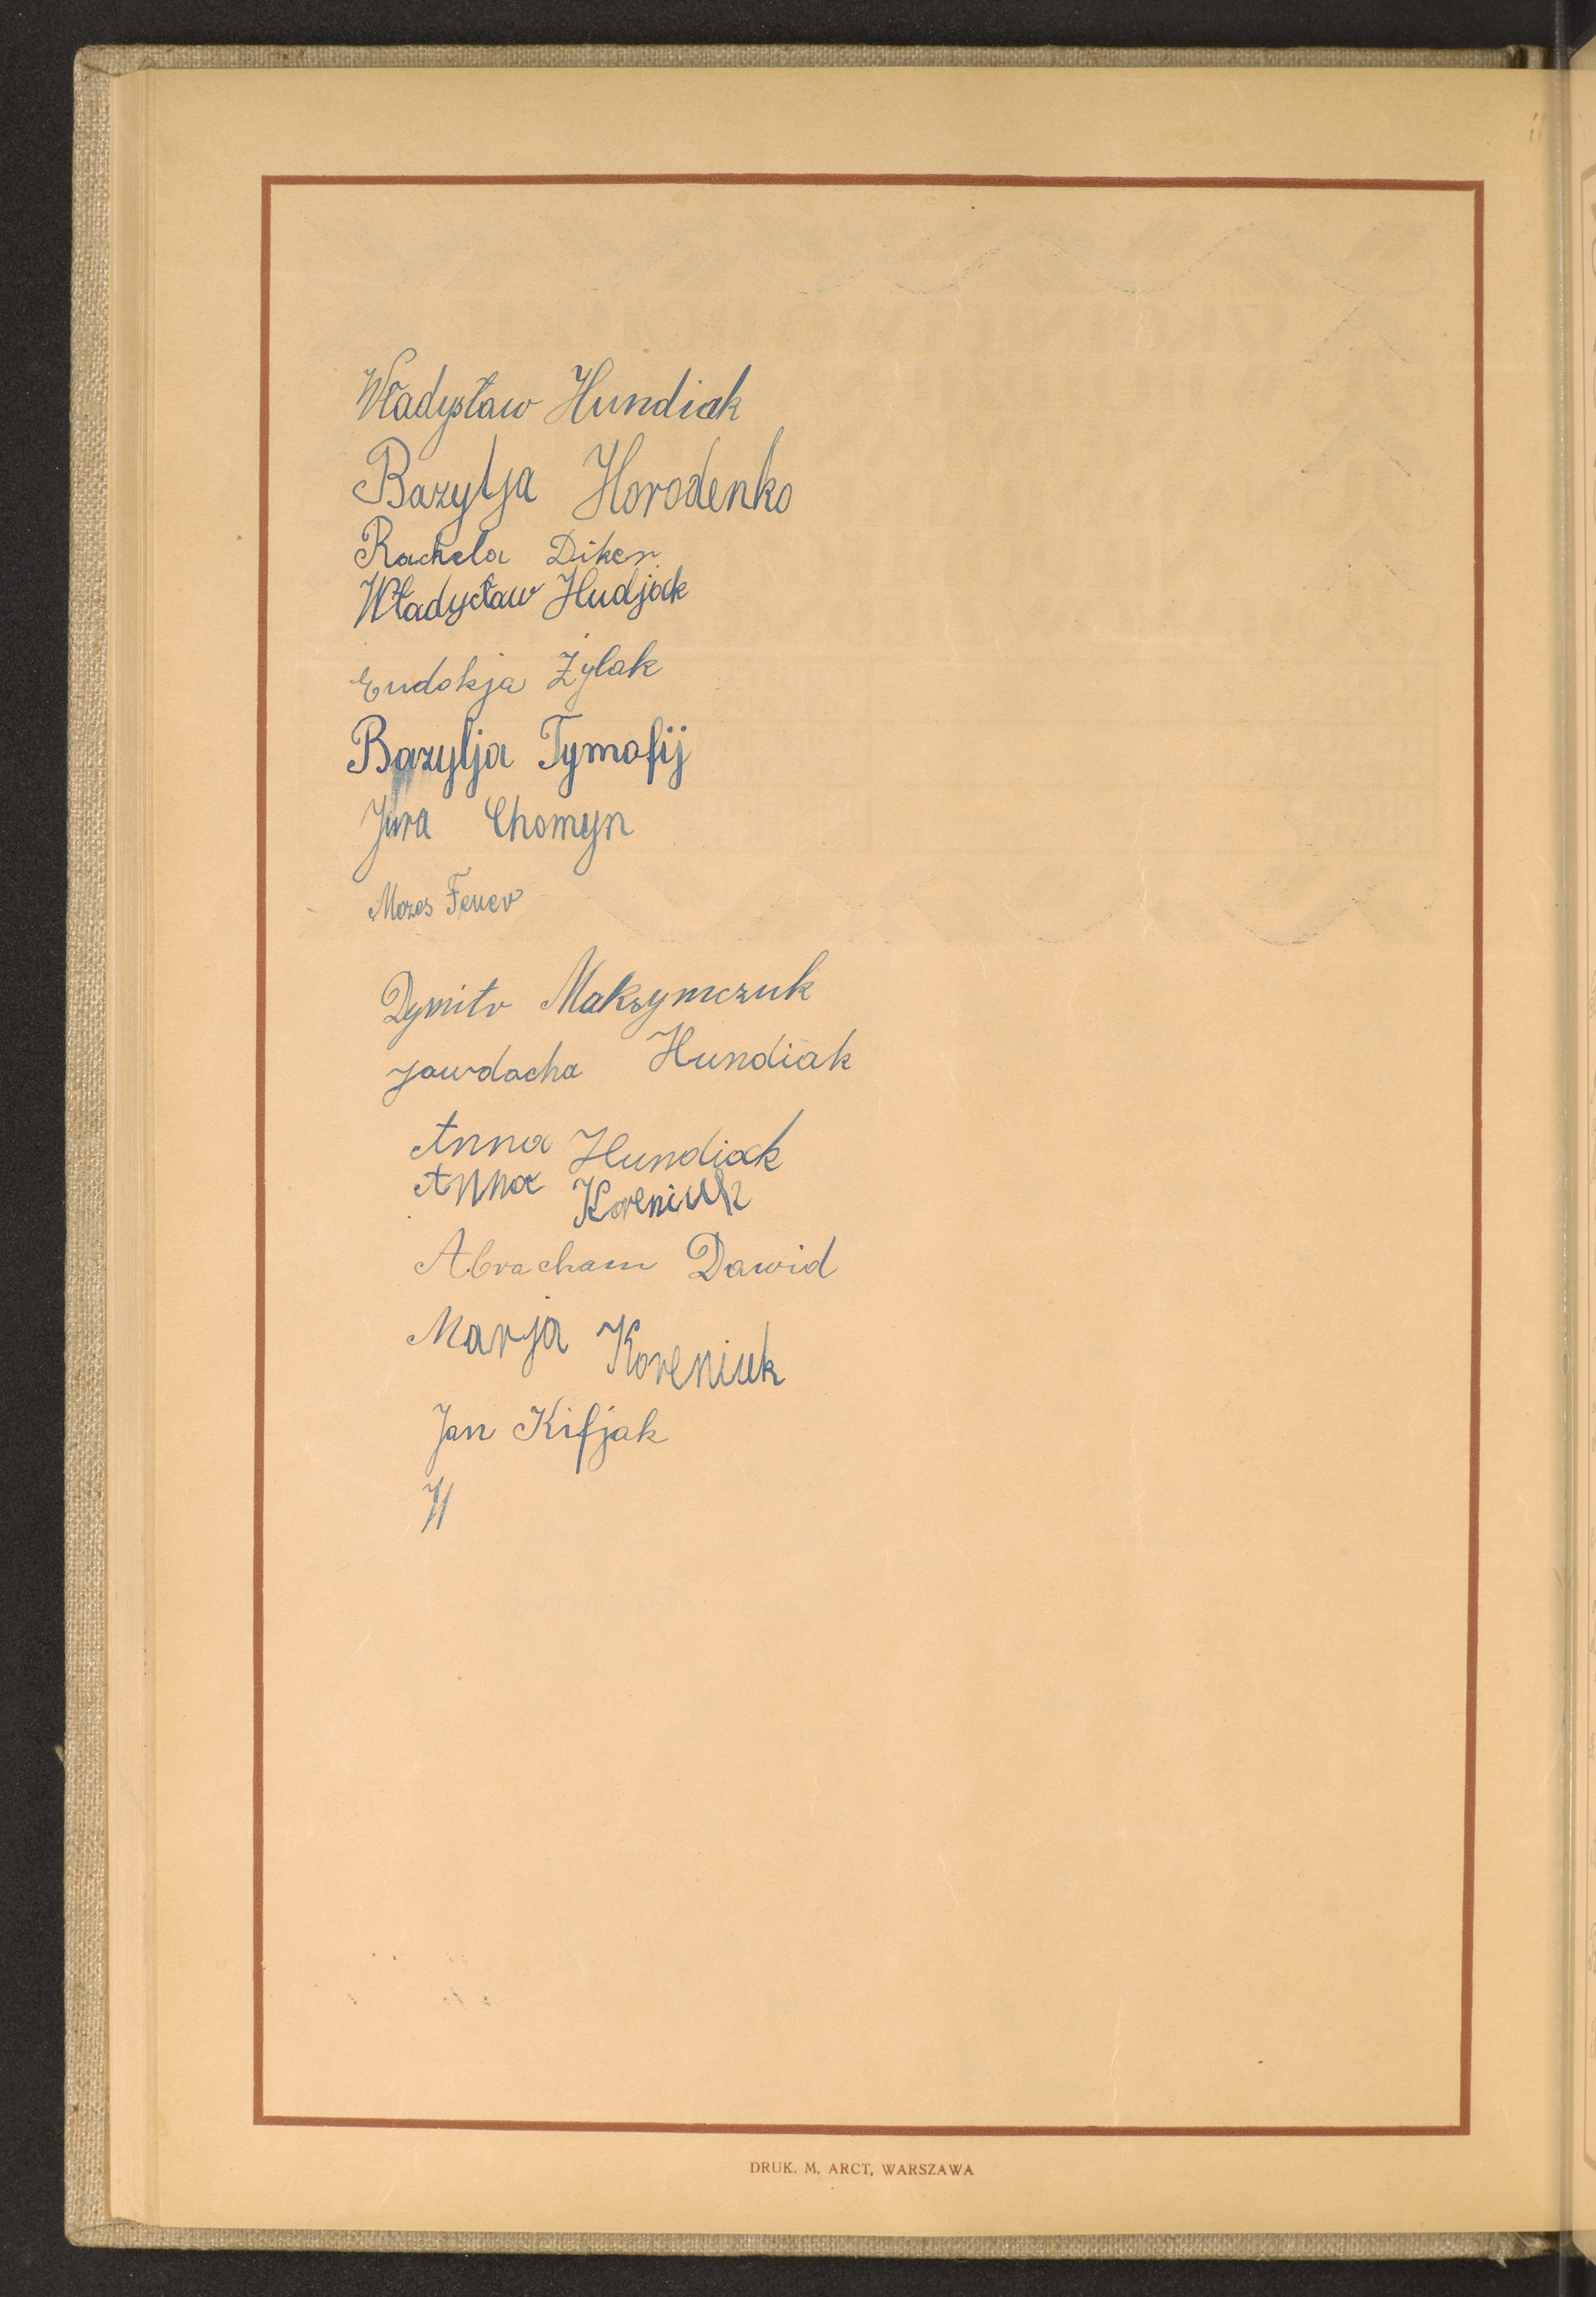 Władysław Hundiak
Bazylja Horodenko
Rachela Diker
Władysław Hudjak
Eudokja Żylak
Bazylja Tymofij
Jura Chomyn
Mozes Feuer
Dymitr Maksymczuk
Jawdocha Hundiak
Anna Hundiak
Anna Koreniuk
Abracham Dawid
Marja Koreniuk
Jan Kifjak
DRUK. M. ARCT, WARSZAWA